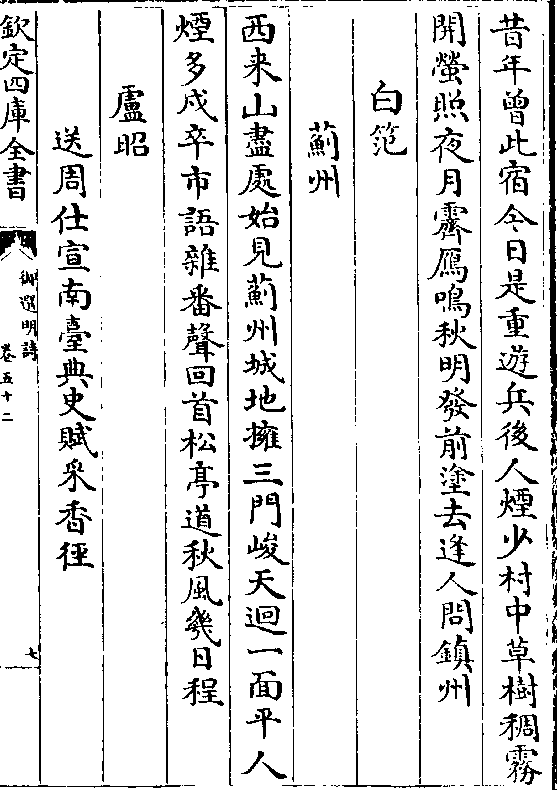 昔年曾此宿今日是重遊兵後人煙少村中草樹稠霧
開螢照夜月霽鴈鳴秋明發前塗去逢人問鎮州
白范
薊州
西来山盡處始見薊州城地擁三門峻天迴一面平人
煙多戍卒市語雜番聲回首松亭道秋風幾日程
盧昭
送周仕宣南臺典史賦采香徑
欽定四庫全書
御選明詩
卷五十二
七